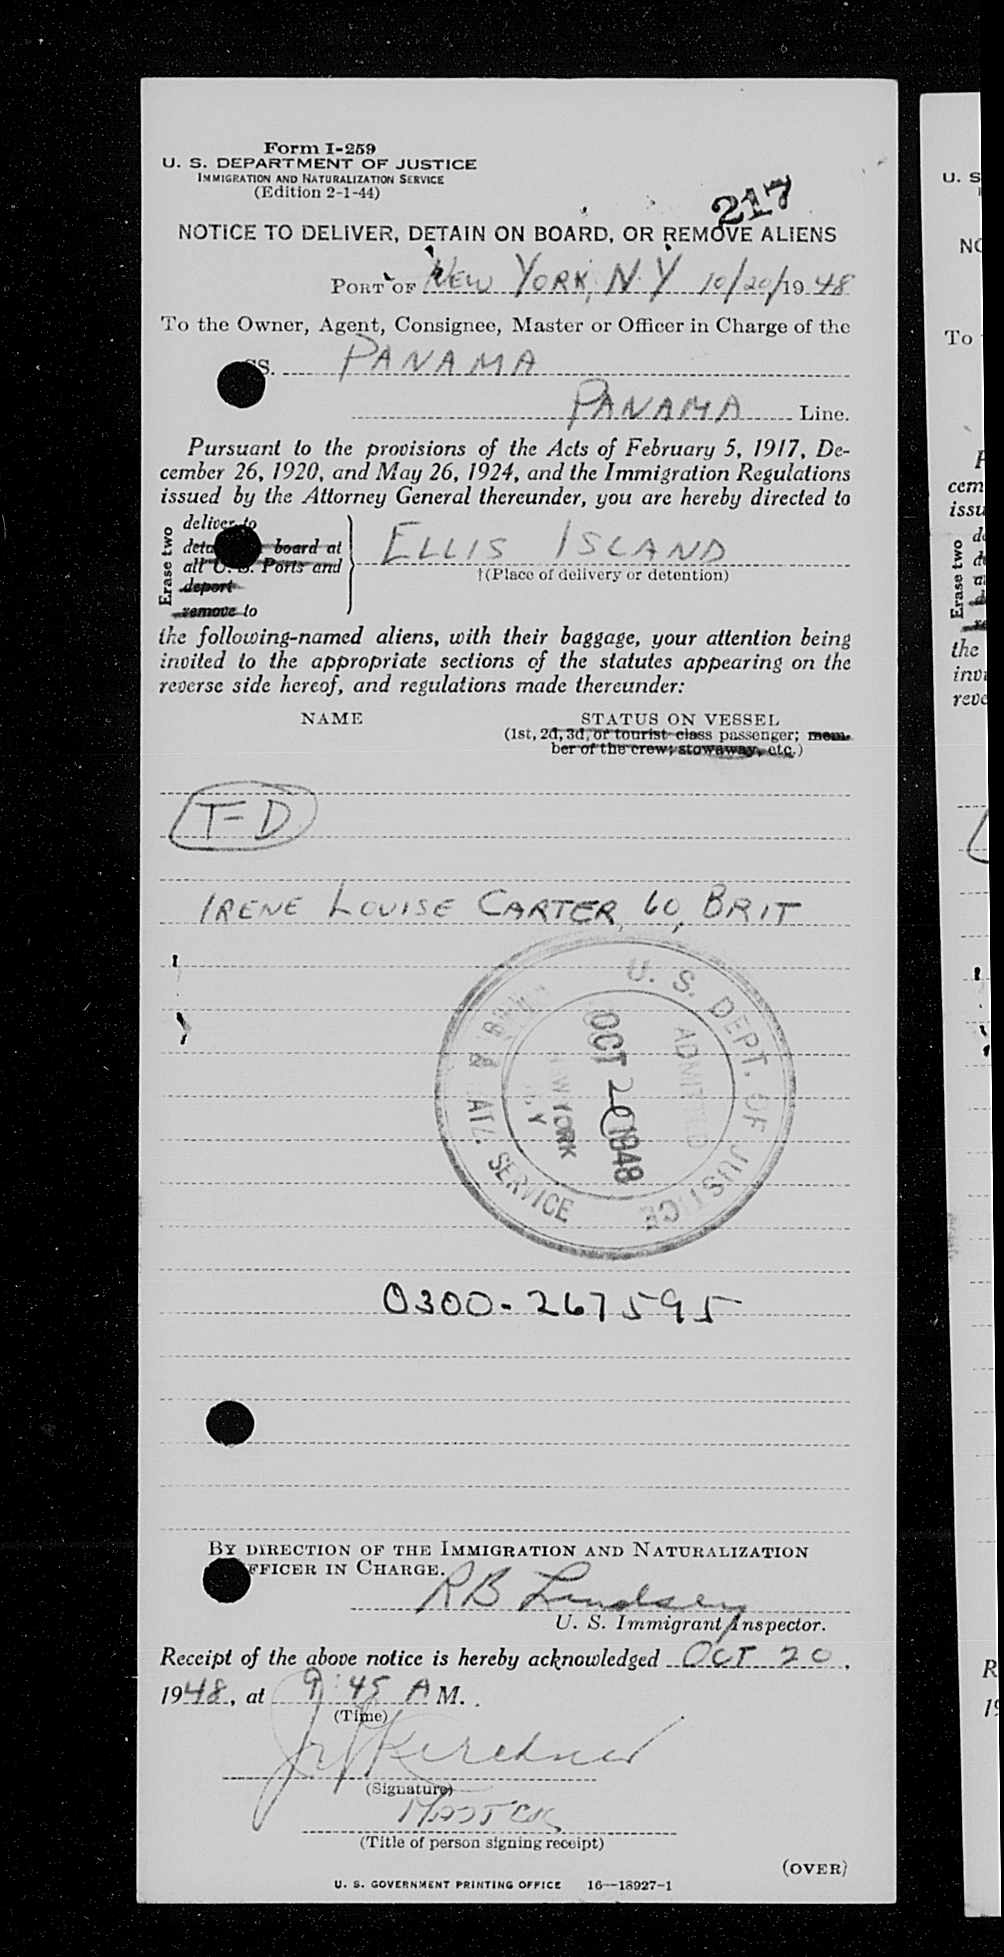 Form I-259
U. S. DEPARTMENT OF JUSTICE
IMMIGRATION AND NATURALIZATION SERVICE
(Edition 2-1-44)
217
NOTICE TO DELIVER, DETAIN ON BOARD, OR REMOVE ALIENS
PORT OF NEW YORK, N.Y 10/20/1948
To the Owner, Agent, Consignee, Master or Officer in Charge of the
SS. PANAMA
PANAMA Line.
Pursuant to the provisions of the Acts of February 5, 1917, De-
cember 26, 1920, and May 26, 1924, and the Immigration Regulations
issued by the Attorney General thereunder, you are hereby directed to
Erase two
deliver to
board at
all U. S. Ports and
deport
remove to
ELLIS ISLAND
†(Place of delivery or detention)
the following-named aliens, with their baggage, your attention being
invited to the appropriate sections of the statutes appearing on the
reverse side hereof, and regulations made thereunder:
NAME STATUS ON VESSEL
(1st, 2d, 3d, or tourist class passenger; mem-
ber of the crew; stowaway, etc.)
T-D
IRENE LOUISE CARTER, 60, BRIT
U. S. DEPT. OF JUSTICE
SERVICE
ADMITTED
OCT 20 1948
NEW YORK
N. Y
0300-267595
BY DIRECTION OF THE IMMIGRATION AND NATURALIZATION
OFFICER IN CHARGE.
RB Lindsey
U. S. Immigrant Inspector.
Receipt of the above notice is hereby acknowledged OCT 20,
1948, at 9:45 A M.
(Time)
(Signature)
(Title of person signing receipt)
(OVER)
U. S. GOVERNMENT PRINTING OFFICE 16—18927-1